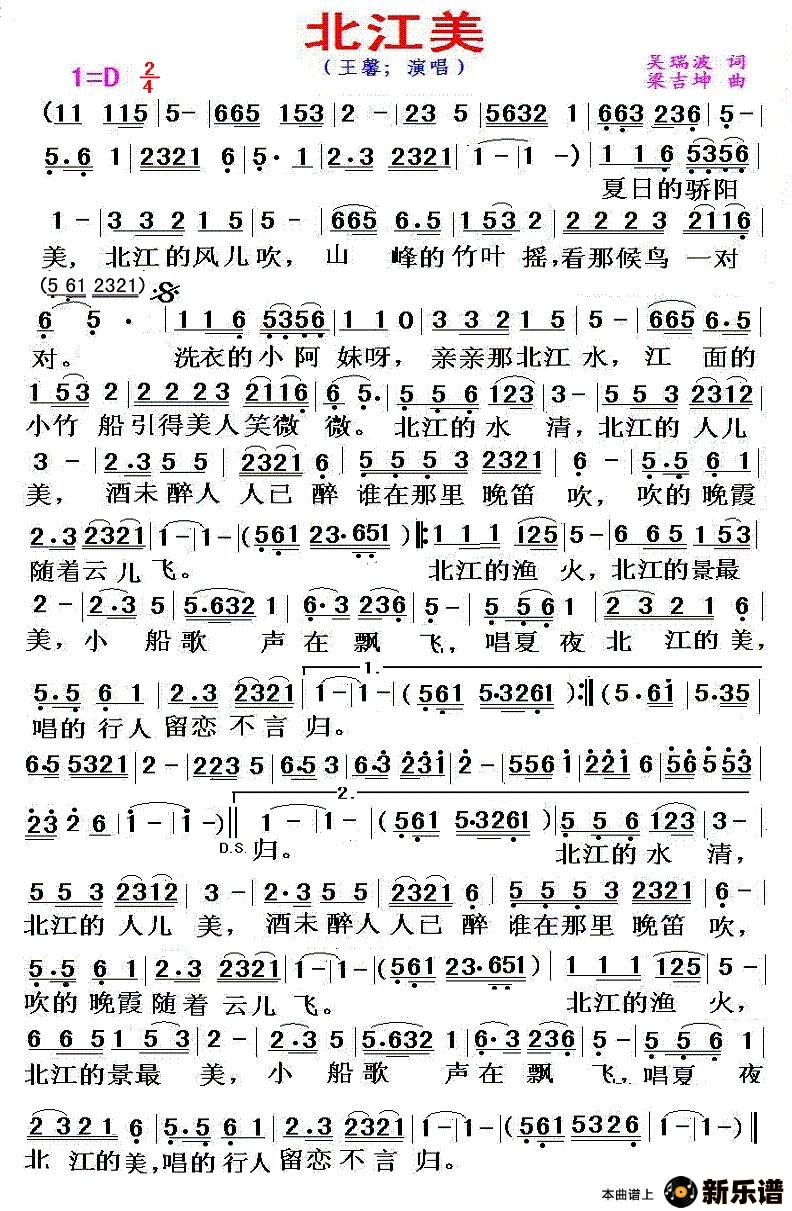 北江美
（王馨；演唱）
吴瑞波 词
1=D 2/4
梁吉坤 曲
(11 115 | 5- | 665 153 | 2 - | 23 5 | 5632 1 | 663 236 | 5- |
5.6 1 | 2321 6 | 5.1 | 2.3 2321 | 1- | 1- ) | 1 1 6 5356 |
夏日的骄阳
1 - | 3 3 2 1 5 | 5- | 665 6.5 | 1 53 2 | 2 2 2 3 2116 |
美，北江的风儿吹，山 峰的竹叶 摇，看那候鸟 一对
(5 61 2321)
6 5 · | 1 1 6 5356 | 1 1 0 | 3 3 2 1 5 | 5 - | 665 6.5 |
对。 洗衣的小阿 妹呀，亲亲那北江水，江 面的
1 53 2 | 2 2 2 3 2116 | 6 5. | 5 5 6 123 | 3- | 5 5 3 2312 |
小竹 船引得美人笑微 微。北江的水 清，北江的人儿
3 - | 2.3 5 5 | 2321 6 | 5.5 5 3 2321 | 6 - | 5.5 6 1 |
美， 酒未醉人 人已醉谁在那里晚笛 吹，吹的晚霞
2.3 2321 | 1- | 1- | (561 23·651) |: 1 1 1 125 | 5- | 6 65 1 53 |
随着云儿飞。 北江的渔 火，北江的景最
2- | 2.3 5 | 5.632 1 | 6·3 236 | 5- | 5 56 1 | 2 32 1 6 |
美，小 船歌 声在飘 飞，唱夏夜北 江的美，
1.
5.5 6 1 | 2.3 2321 | 1- | 1- | (561 5·3261) :|| (5.61 | 5.35 |
唱的行人留恋不言归。
6.5 5321 | 2 - | 223 5 | 6.5 3 | 6.3 231 | 2- | 556 1 | 221 6 | 56 553 |
2.
23 2 6 | 1- | 1- ) || 1 - | 1 - | (561 5.3261 ) | 5 5 6 123 | 3 - |
D.S. 归。 北江的水 清，
5 5 3 2312 | 3 - | 2·3 5 5 | 2321 6 | 5 5 5 3 2321 | 6 - |
北江的人儿 美，酒未醉人人已醉 谁在那里晚笛 吹，
5.5 6 1 | 2.3 2321 | 1- | 1- | (561 23·651) | 1 1 1 125 | 5- |
吹的晚霞随着云儿飞。 北江的渔 火，
6 6 5 1 53 | 2 - | 2.3 5 | 5.632 1 | 6·3 236 | 5- | 5 5 6 1 |
北江的景最 美，小 船歌 声在飘 飞，唱夏 夜
2 32 1 6 | 5.5 6 1 | 2.3 2321 | 1- | 1- | (561 5326 | 1 - ) ||
北 江的美，唱的行人留恋不言归。
本曲谱上 新乐谱